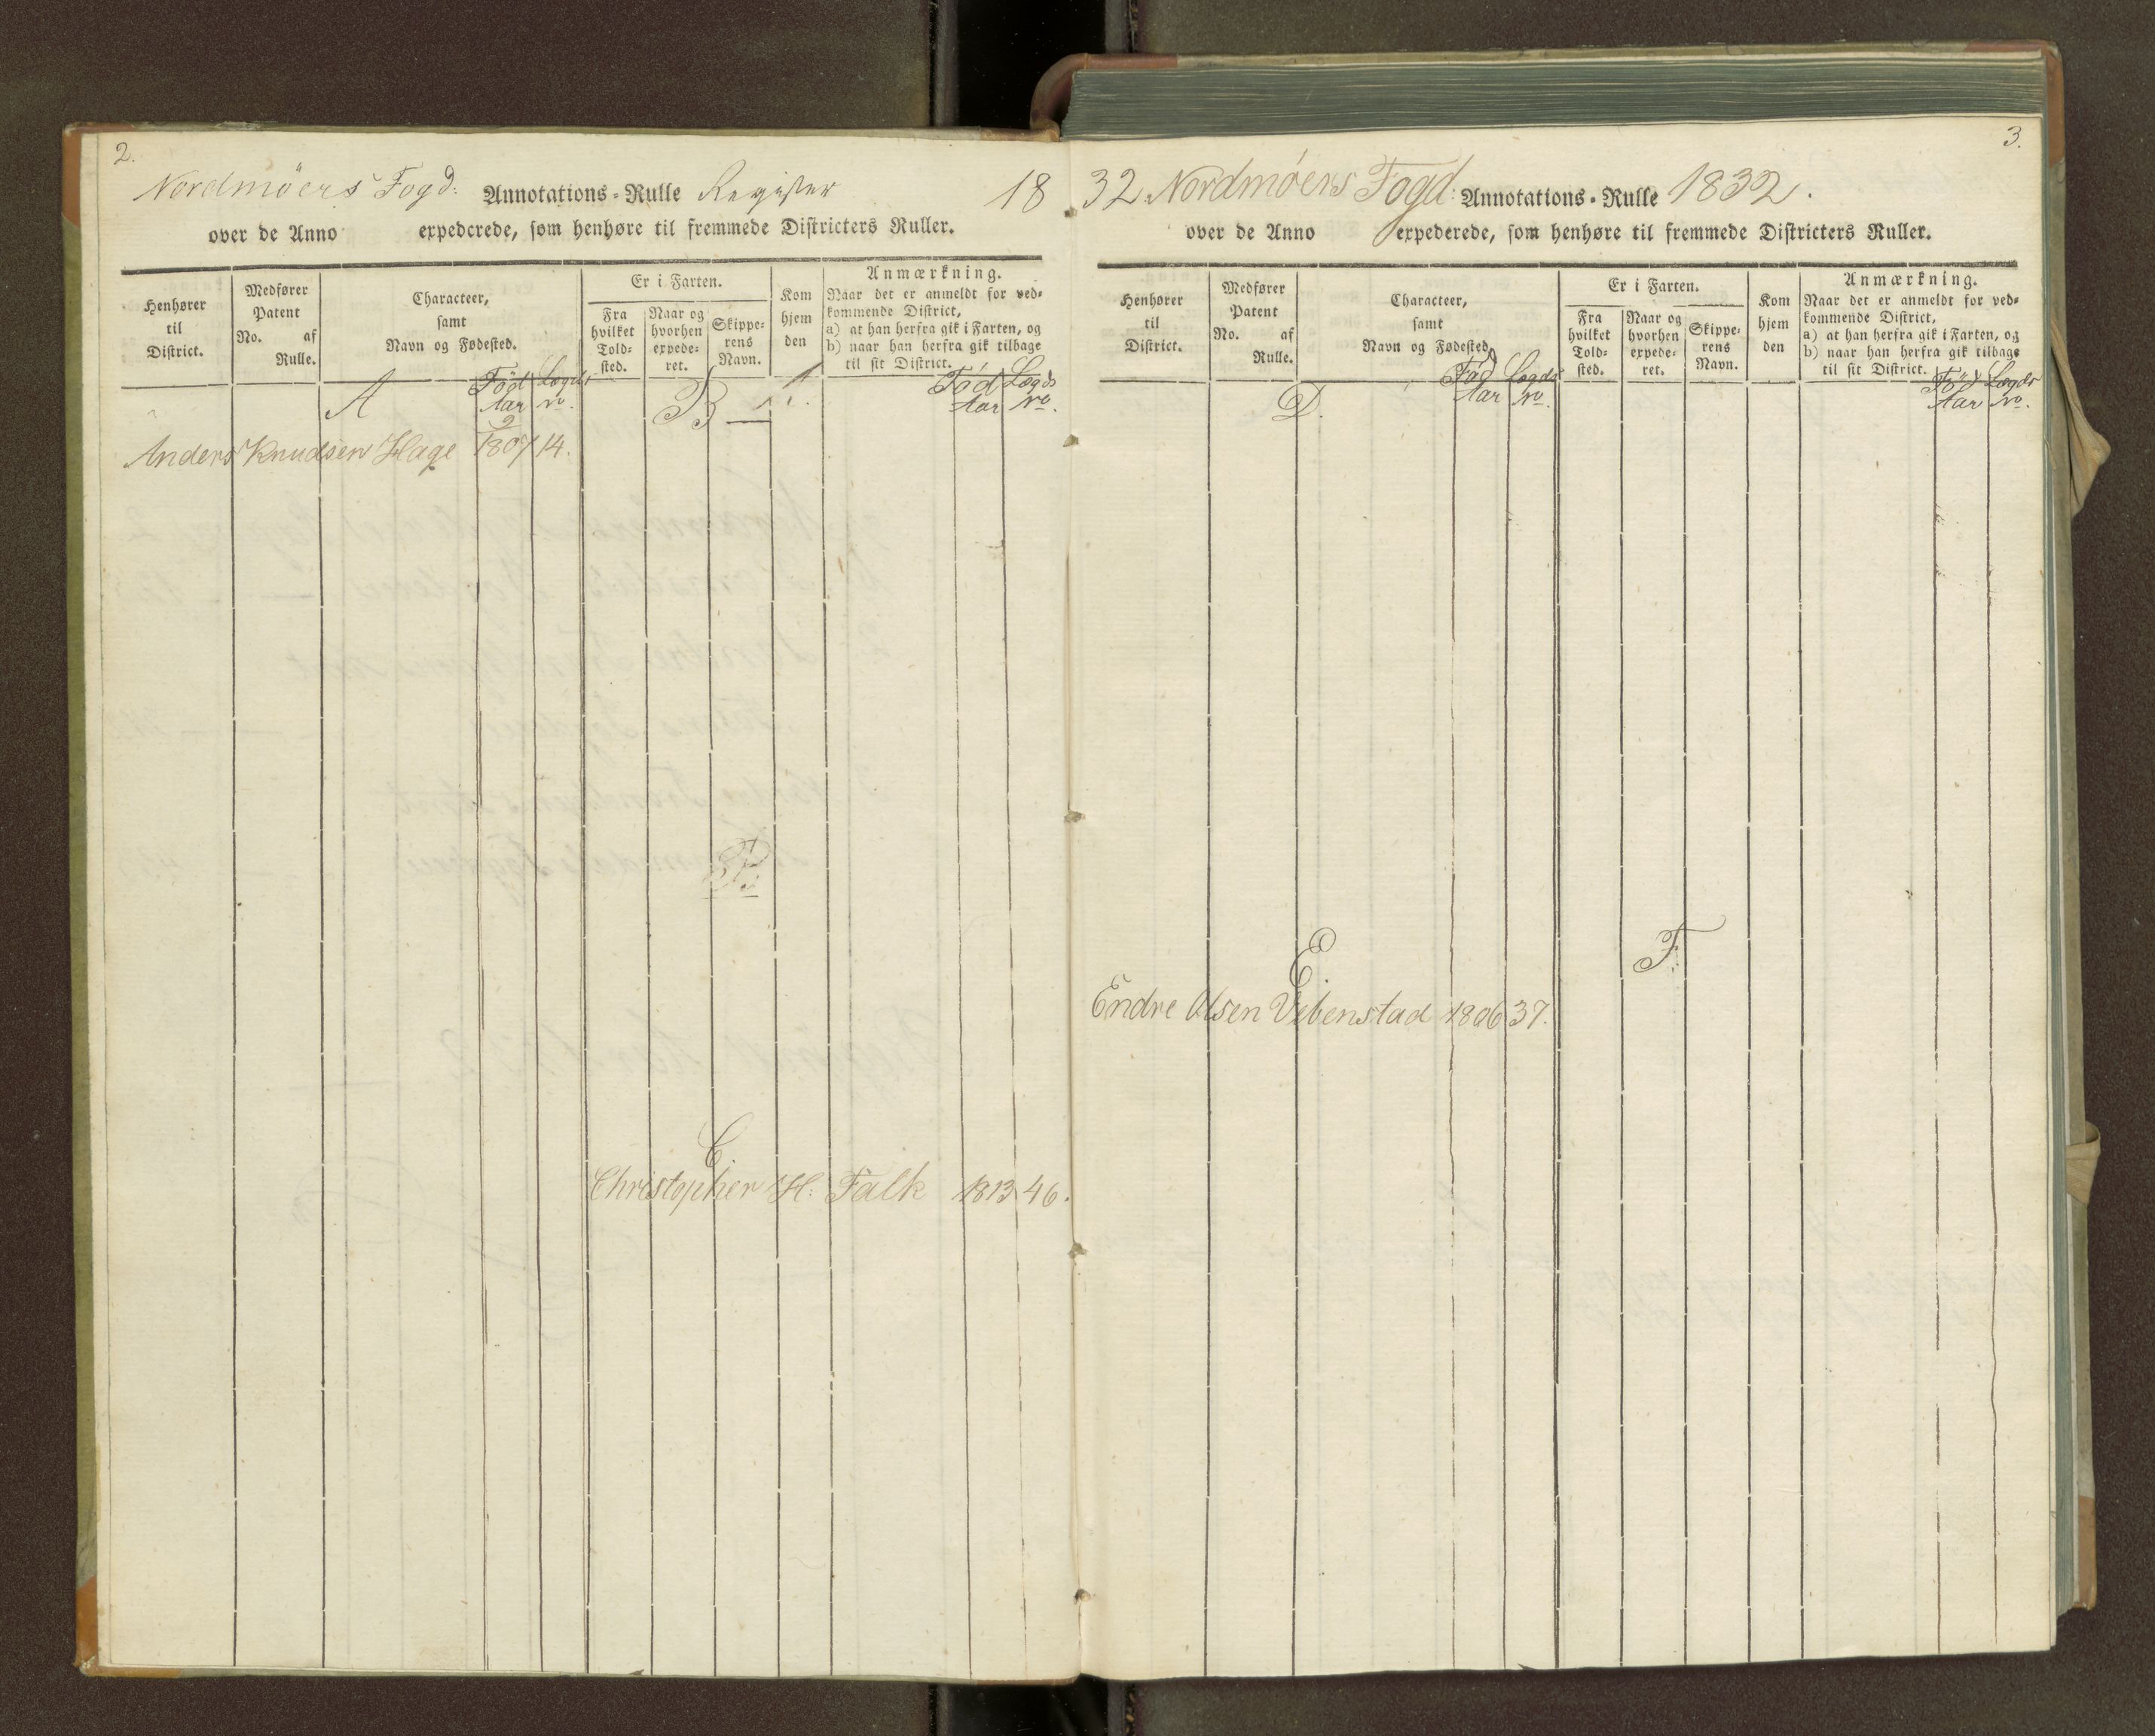 2.
Nordmöers Fogd: Annotations-Rulle Register 18
over de Anno expederede, som henhøre til fremmede Districters Ruller.
Henhører til District.
Medfører Patent No. af Rulle.
Characteer, samt Navn og Fødested.
Er i Farten.
Fra hvilket Told-sted.
Naar og hvorhen expede-ret.
Skippe-rens Navn.
Kom hjem den
Anmærkning.
Naar det er anmeldt for ved-
kommende District,
a) at han herfra gik i Farten, og
b) naar han herfra gik tilbage
til sit District.
Föd Aar
Lægds No.
Föd Aar
Lægds No.
A
B
Anders Knudsen Hage 1807 14.
C.
Christopher H. Falk 1813 46.
3.
32 Nordmöers Fogd: Annotations-Rulle 1832.
over de Anno expederede, som henhøre til fremmede Districters Ruller.
Henhører til District.
Medfører Patent No. af Rulle.
Characteer, samt Navn og Fødested.
Er i Farten.
Fra hvilket Told-sted.
Naar og hvorhen expede-ret.
Skippe-rens Navn.
Kom hjem den
Anmærkning.
Naar det er anmeldt for ved-
kommende District,
a) at han herfra gik i Farten, og
b) naar han herfra gik tilbage
til sit District.
Föd Aar
Lægds No.
Föd Aar
Lægds No.
D.
E.
F.
Endre Olsen Vebenstad 1806 37.